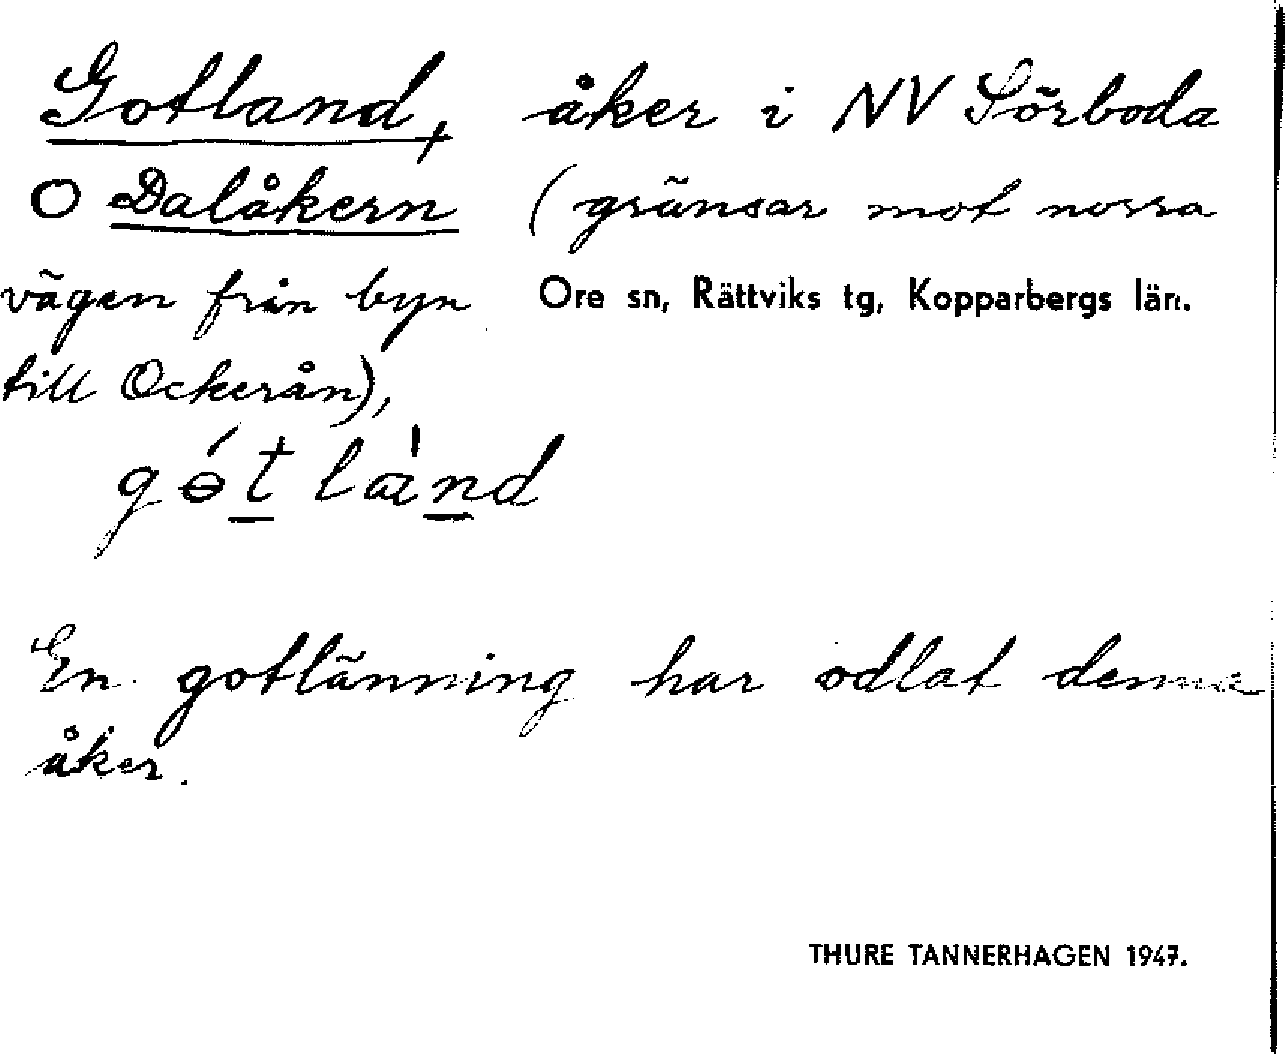 Gotland, åker i NV Sörboda
O Dalåkern (gränsar mot norra
vägen från byn Ore sn, Rättviks tg, Kopparbergs län.
till Ockerån),
gɵ́t la̍nd
En gotlänning har odlat denna
åker.
THURE TANNERHAGEN 1947.